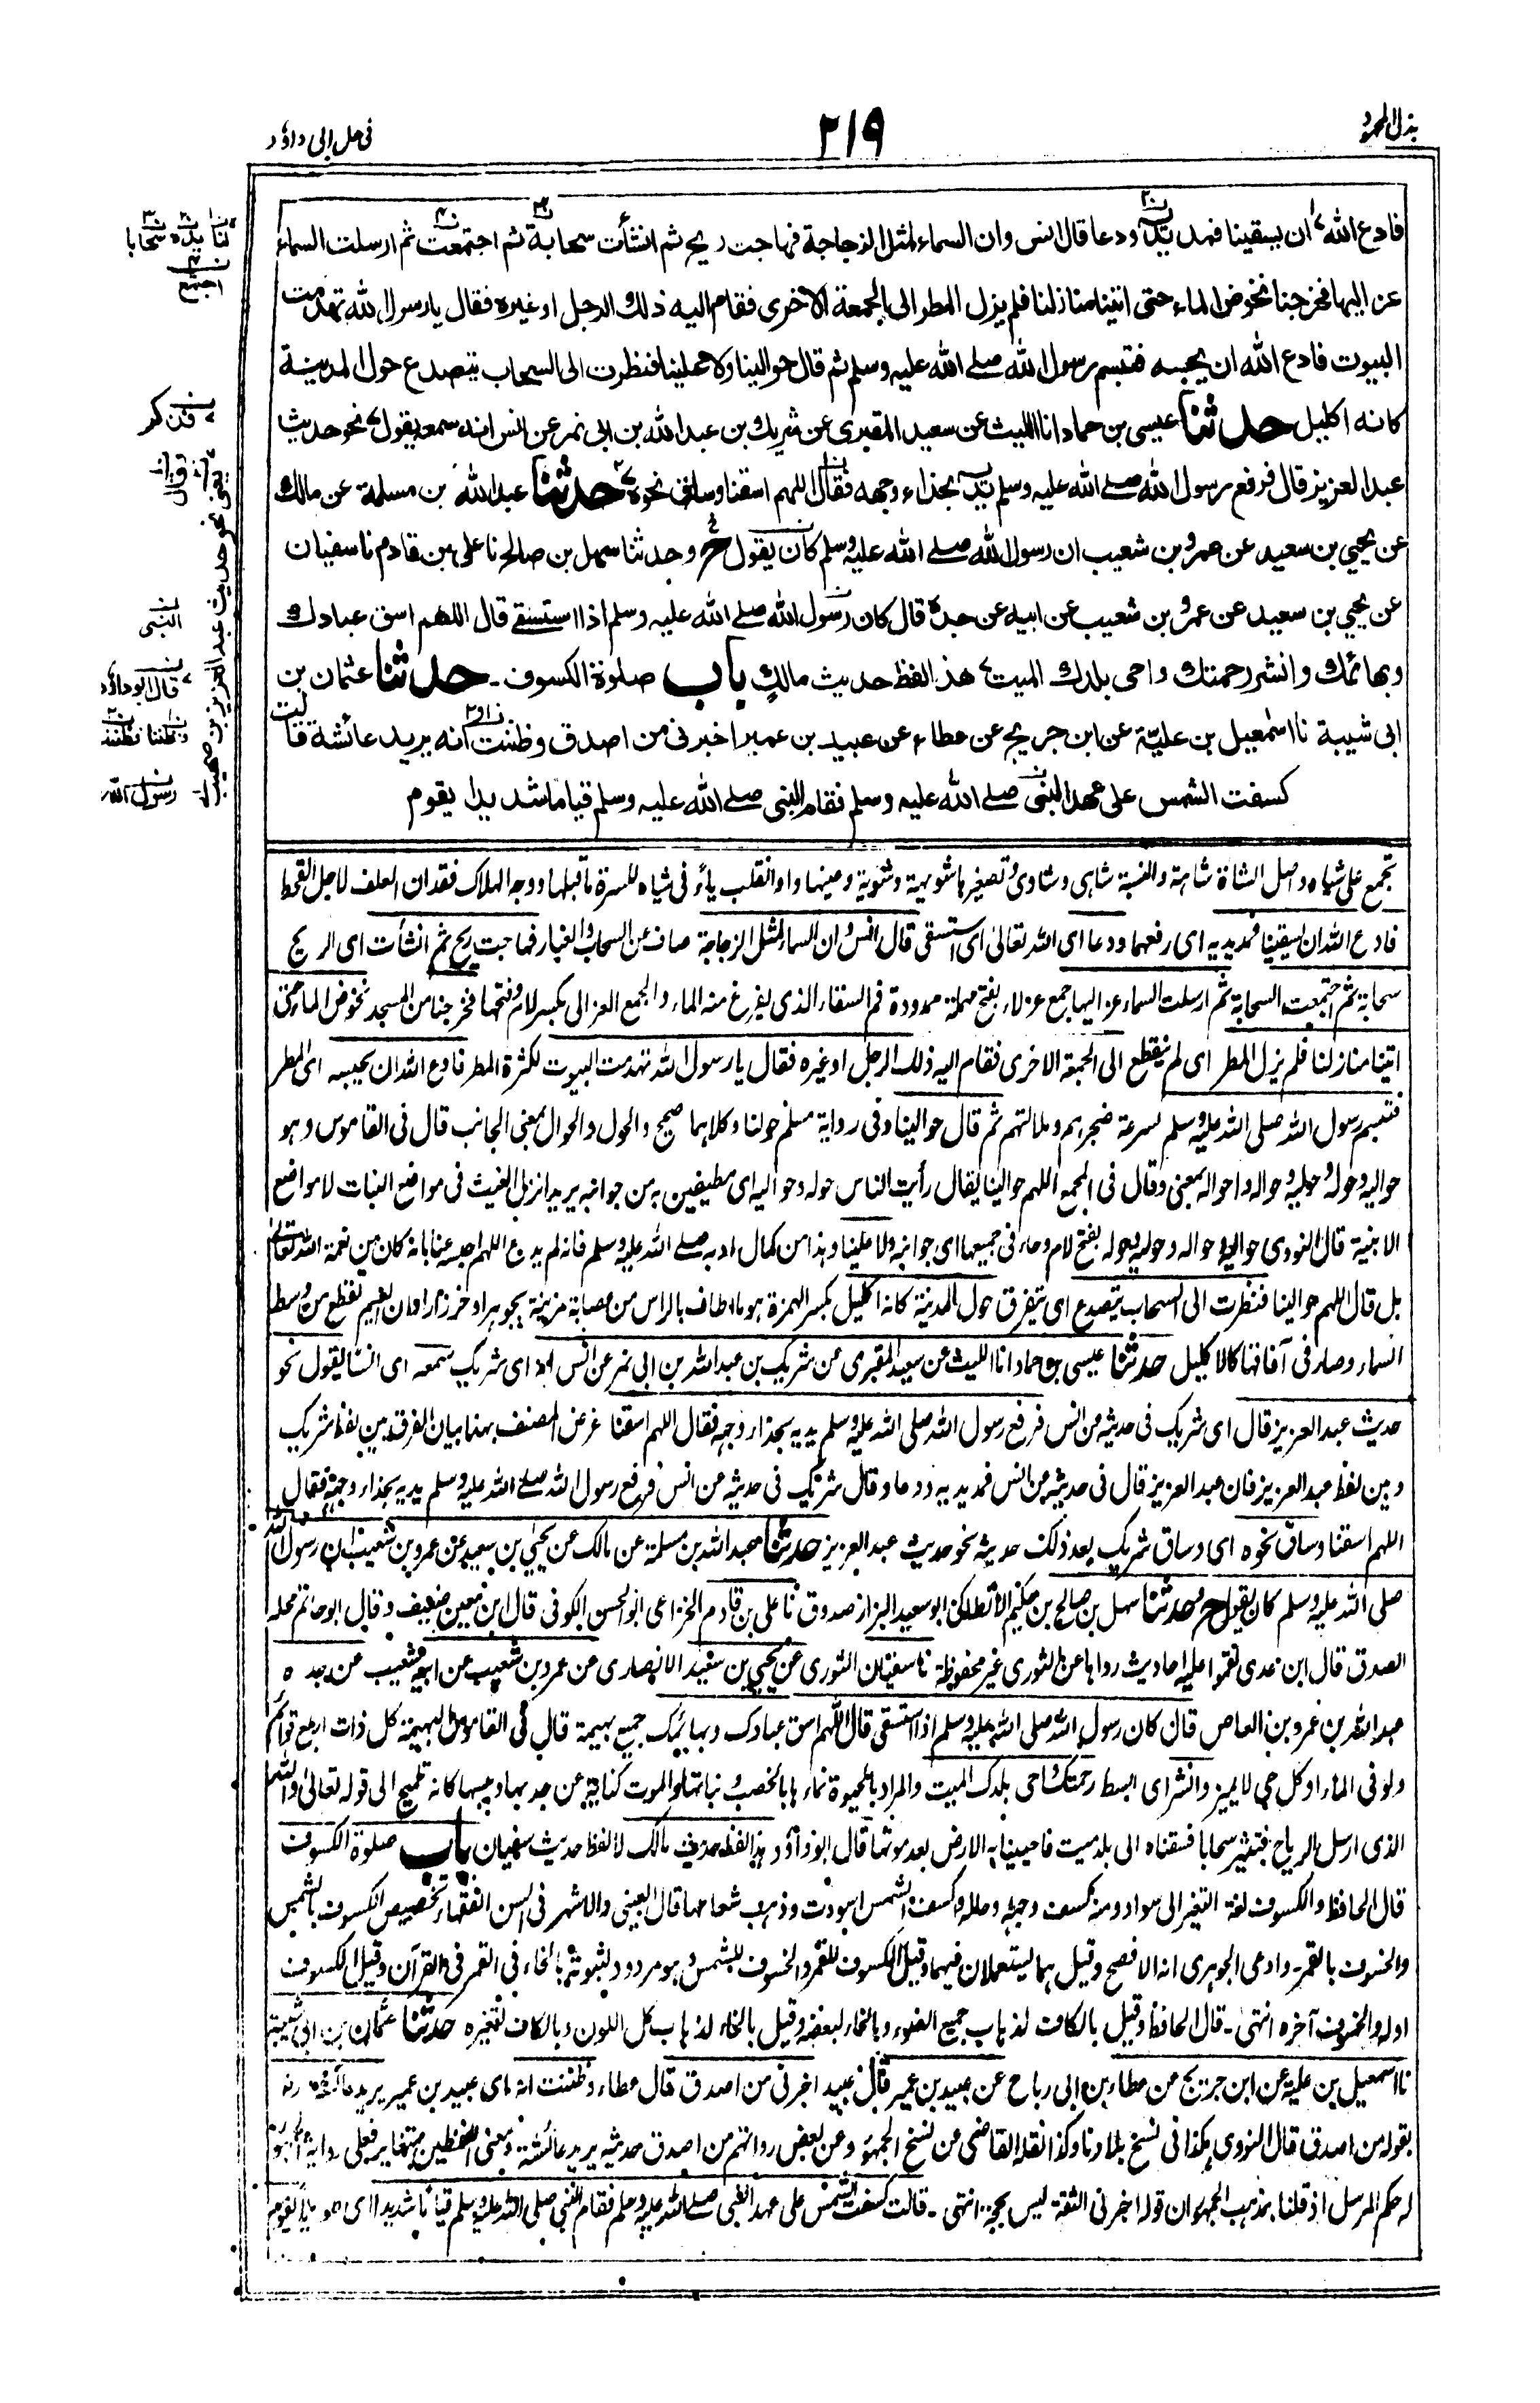 بذل المجهود
٢١٩
فى حل ابى داؤد
فادع الله ان يسقينا فمد يده ودعا قال انس وان السماء لمثل الزجاجة فهاجت ريح ثم انشأت سحابة ثم اجتمعت ثم ارسلت السماء
عزاليها فخرجنا نخوض الماء حتى اتينا منازلنا فلم يزل المطر الى الجمعة الاخرى فقام اليه ذلك الرجل او غيره فقال يا رسول الله تهدمت
البيوت فادع الله ان يحبسه فتبسم رسول الله صلے الله عليه وسلم ثم قال حوالينا ولا علينا فنظرت الى السحاب يتصدع حول المدينة
كانه اكليل حدثنا عيسى بن حماد انا الليث عن سعيد المقبرى عن شريك بن عبد الله بن ابى نمر عن انس انه سمعه يقول نحو حديث
عبد العزيز قال فرفع رسول الله صلے الله عليه وسلم يديه بحذاء وجهه فقال اللهم اسقنا وساق نحوه حدثنا عبد الله بن مسلمة عن مالك
عن يحيي بن سعيد عن عمرو بن شعيب ان رسول الله صلے الله عليه وسلم كان يقول ح وحدثنا سهل بن صالح نا على بن قادم نا سفيان
عن يحيي بن سعيد عن عمرو بن شعيب عن ابيه عن جده قال كان رسول الله صلے الله عليه وسلم اذا استسقے قال اللهم اسق عبادك
وبهائمك وانشر رحمتك واحى بلدك الميت هذا لفظ حديث مالك باب صلوة الكسوف۔ حدثنا عثمان بن
ابى شيبة نا اسمعيل بن علية عن ابن جريج عن عطاء عن عبيد بن عمير اخبرنى من اصدق وظننت انه يريد عائشة قالت
كسفت الشمس على عهد النبى صلے الله عليه وسلم فقام النبى صلے الله عليه وسلم قياما شديدا يقوم
لنا يده سحابا
اجتمع
فذكر
يعنى نحو حديث عبد العزيز بن صهيب
وقال
النبى
قال ابو داؤد
وظننا فظننت
رسول الله
تجمع على شياه واصل الشاة شاهة والنسبة شاهى وشاوى وتصغيرها شويهة وشوية وعينها واو انقلب ياء فى شياه لكسرة ماقبلها ووجه الهلاك فقدان العلف لاجل القحط
فادع الله ان يسقينا فمد يديه اى رفعهما ودعا اى الله تعالى اى استسقى قال انس وان السماء لمثل الزجاجة صاف عن السحاب والغبار فهاجت ريح ثم انشأت اى الريح
سحابة ثم اجتمعت السحابة ثم ارسلت السماء عزاليها جمع عزلاء بفتح مهملة ممدودة فم السقاء الذى يفرغ منه الماء والجمع العزالى بكسر لام وفتحها فخرجنا من المسجد نخوض الماء حتى
اتينا منازلنا فلم يزل المطر اى لم ينقطع الى الجمعة الاخرى فقام اليه ذلك الرجل او غيره فقال يا رسول الله تهدمت البيوت لكثرة المطر فادع الله ان يحبسه اى المطر
فتبسم رسول الله صلى الله عليه وسلم لسرعة ضجرهم وملالتهم ثم قال حوالينا وفى رواية مسلم حولنا وكلاهما صحيح والحول والحوال بمعنى الجانب قال فى القاموس وهو
حواليه وحوله وحوليه وحواله واحواله بمعنى وقال فى المجمع اللهم حوالينا يقال رأيت الناس حوله وحواليه اى مطيفين به من جوانبه يريد انزل الغيث فى مواضع النبات لا مواضع
الابنية قال النووى حواليه وحواله وحوليه وحوله بفتح لام وحاء فى جميعها اى جوانبه ولا علينا وهذا من كمال ادبه صلے الله عليه وسلم فانه لم يدع اللهم احبسه عنا بانه كان من نعمة الله تعالى
بل قال اللهم حوالينا فنظرت الى السحاب يتصدع اى يتفرق حول المدينة كانه اكليل بكسر الهمزة هو ما اطاف بالراس من عصابة مزينة بجوهر او خرز اراد ان الغيم تقطع من وسط
السماء وصار فى آفاقها كالاكليل حدثنا عيسى بن حماد انا الليث عن سعيد المقبرى عن شريك بن عبد الله بن ابى نمر عن انس انه اى شريك سمعه اى انسا يقول نحو
حديث عبد العزيز قال اى شريك فى حديثه من انس فرفع رسول الله صلى الله عليه وسلم يديه بحذاء وجهه فقال اللهم اسقنا غرض المصنف بهذا بيان الفرق بين لفظ شريك
وبين لفظ عبد العزيز فان عبد العزيز قال فى حديثه من انس فمد يديه ودعا وقال شريك فى حديثه من انس فرفع رسول الله صلے الله عليه وسلم يديه بحذاء وجهه فقال
اللهم اسقنا وساق نحوه اى وساق شريك بعد ذلك حديثه نحو حديث عبد العزيز حدثنا عبد الله بن مسلمة عن مالك عن يحيي بن سعيد عن عمرو بن شعيب ان رسول الله
صلى الله عليه وسلم كان يقول ح وحدثنا سهل بن صالح بن حكيم الانطاكى ابو سعيد البزاز صدوق نا على بن قادم الخزاعى ابو الحسن الكوفى قال ابن معين ضعيف وقال ابو حاتم محله
الصدق قال ابن عدى نقموا عليه احاديث رواها عن الثورى غير محفوظة نا سفيان الثورى عن يحيي بن سعيد الانصارى عن عمرو بن شعيب عن ابيه شعيب عن جده
عبد الله بن عمرو بن العاص قال كان رسول الله صلى الله عليه وسلم اذا استسقى قال اللهم اسق عبادك وبهائمك جميع بهيمة قال فى القاموس البهيمة كل ذات اربع قوائم
ولو فى الماء او كل حى لا يميز وانشر اى ابسط رحمتك واحى بلدك الميت والمراد بالحيوة نماءها بالخصب ونباتها والموت كناية عن جدبها ويبسها كانه تلميح الى قوله تعالى والله
الذى ارسل الرياح فتثير سحابا فسقناه الى بلد ميت فاحيينا به الارض بعد موتها قال ابو داؤد هذا لفظ حديث مالك لا لفظ حديث سفيان باب صلوة الكسوف
قال الحافظ والكسوف لغة التغير الى سواد ومنه كسف وجهه وحاله وكسفت الشمس اسودت وذهب شعاعها قال العينى والاشهر فى السن الفقهاء تخصيص الكسوف بالشمس
والخسوف بالقمر۔ وادعى الجوهرى انه الافصح وقيل هما يستعملان فيهما وقيل الكسوف للقمر والخسوف للشمس وهو مردود لثبوته بالخاء فى القمر فى القرآن وقيل الكسوف
اوله والخسوف آخره انتهى۔ قال الحافظ وقيل بالكاف لذهاب جميع الضوء وبالخاء لبعضه وقيل بالخاء لذهاب كل اللون وبالكاف لتغيره حدثنا عثمان بن ابى شيبة
نا اسمعيل بن علية عن ابن جريج عن عطاء بن ابى رباح عن عبيد بن عمير قال عبيد اخبرنى من اصدق قال عطاء وظننت انه اى عبيد بن عمير يريد عائشة رضه
بقوله من اصدق قال النووى هكذا فى نسخ بلادنا وكذا نقله القاضى عن نسخ الجمهور وعن بعض رواتهم من اصدق حديثه يريد عائشة ومعنى اللفظين متغاير فعلى رواية الجمهور
له حكم المرسل اذ قلنا بمذهب الجمهور ان قوله اخبرنى الثقة ليس بحجة انتهى۔ قالت كسفت الشمس على عهد النبى صلے الله عليه وسلم فقام النبى صلى الله عليه وسلم قياما شديدا اى يقوم